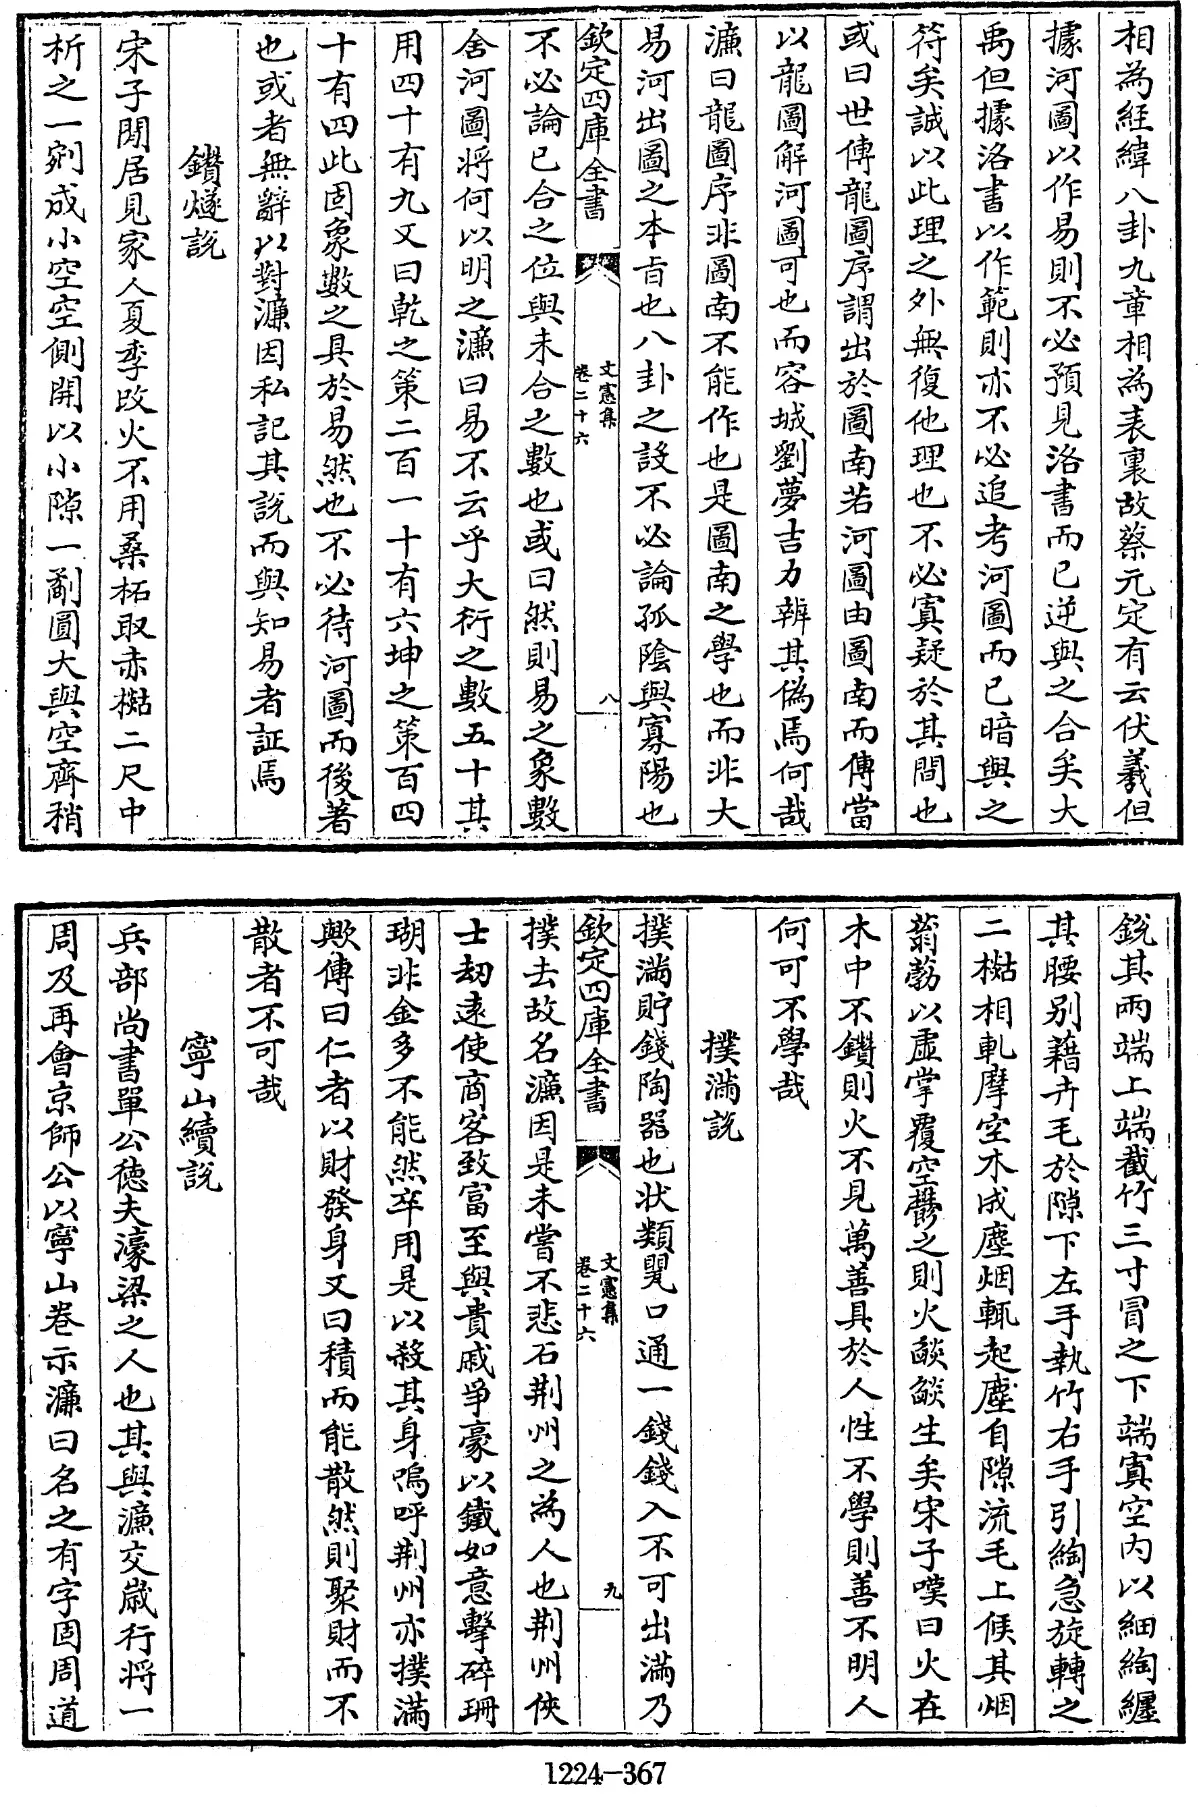 相為經緯八卦九章相為表裏故蔡元定有云伏羲但
據河圖以作易則不必預見洛書而已逆與之合矣大
禹但據洛書以作範則亦不必追考河圖而已暗與之
符矣誠以此理之外無復他理也不必寘疑於其間也
或曰世傳龍圖序謂出於圖南若河圖由圖南而傳當
以龍圖解河圖可也而容城劉夢吉力辨其偽焉何哉
濂曰龍圖序非圖南不能作也是圖南之學也而非大
易河出圖之本旨也八卦之設不必論孤陰與寡陽也
欽定四庫全書
文憲集
卷二十六
八
不必論已合之位與未合之數也或曰然則易之象數
舍河圖將何以明之濂曰易不云乎大衍之數五十其
用四十有九又曰乾之策二百一十有六坤之策百四
十有四此固象數之具於易然也不必待河圖而後著
也或者無辭以對濂因私記其說而與知易者証焉
鑽燧說
宋子閒居見家人夏季改火不用桑柘取赤樜二尺中
析之一剜成小空空側開以小隙一剷圓大與空齊稍
銳其兩端上端截竹三寸冒之下端寘空内以細綯纒
其腰别藉卉毛於隙下左手執竹右手引綯急旋轉之
二樜相軋摩空木成塵烟輒起塵自隙流毛上候其烟
蓊勃以虚掌覆空鬱之則火燄燄生矣宋子嘆曰火在
木中不鑽則火不見萬善具於人性不學則善不明人
何可不學哉
撲滿說
撲滿貯錢陶器也状類甖口通一錢錢入不可出滿乃
欽定四庫全書
文憲集
卷二十六
九
撲去故名濂因是未嘗不悲石荆州之為人也荆州俠
士刼遠使商客致富至與貴戚爭豪以鐵如意擊碎珊
瑚非金多不能然卒用是以殺其身嗚呼荆州亦撲滿
歟傳曰仁者以財發身又曰積而能散然則聚財而不
散者不可哉
寧山續說
兵部尚書單公徳夫濠梁之人也其與濂交歲行将一
周及再會京師公以寧山卷示濂曰名之有字固周道
1224-367